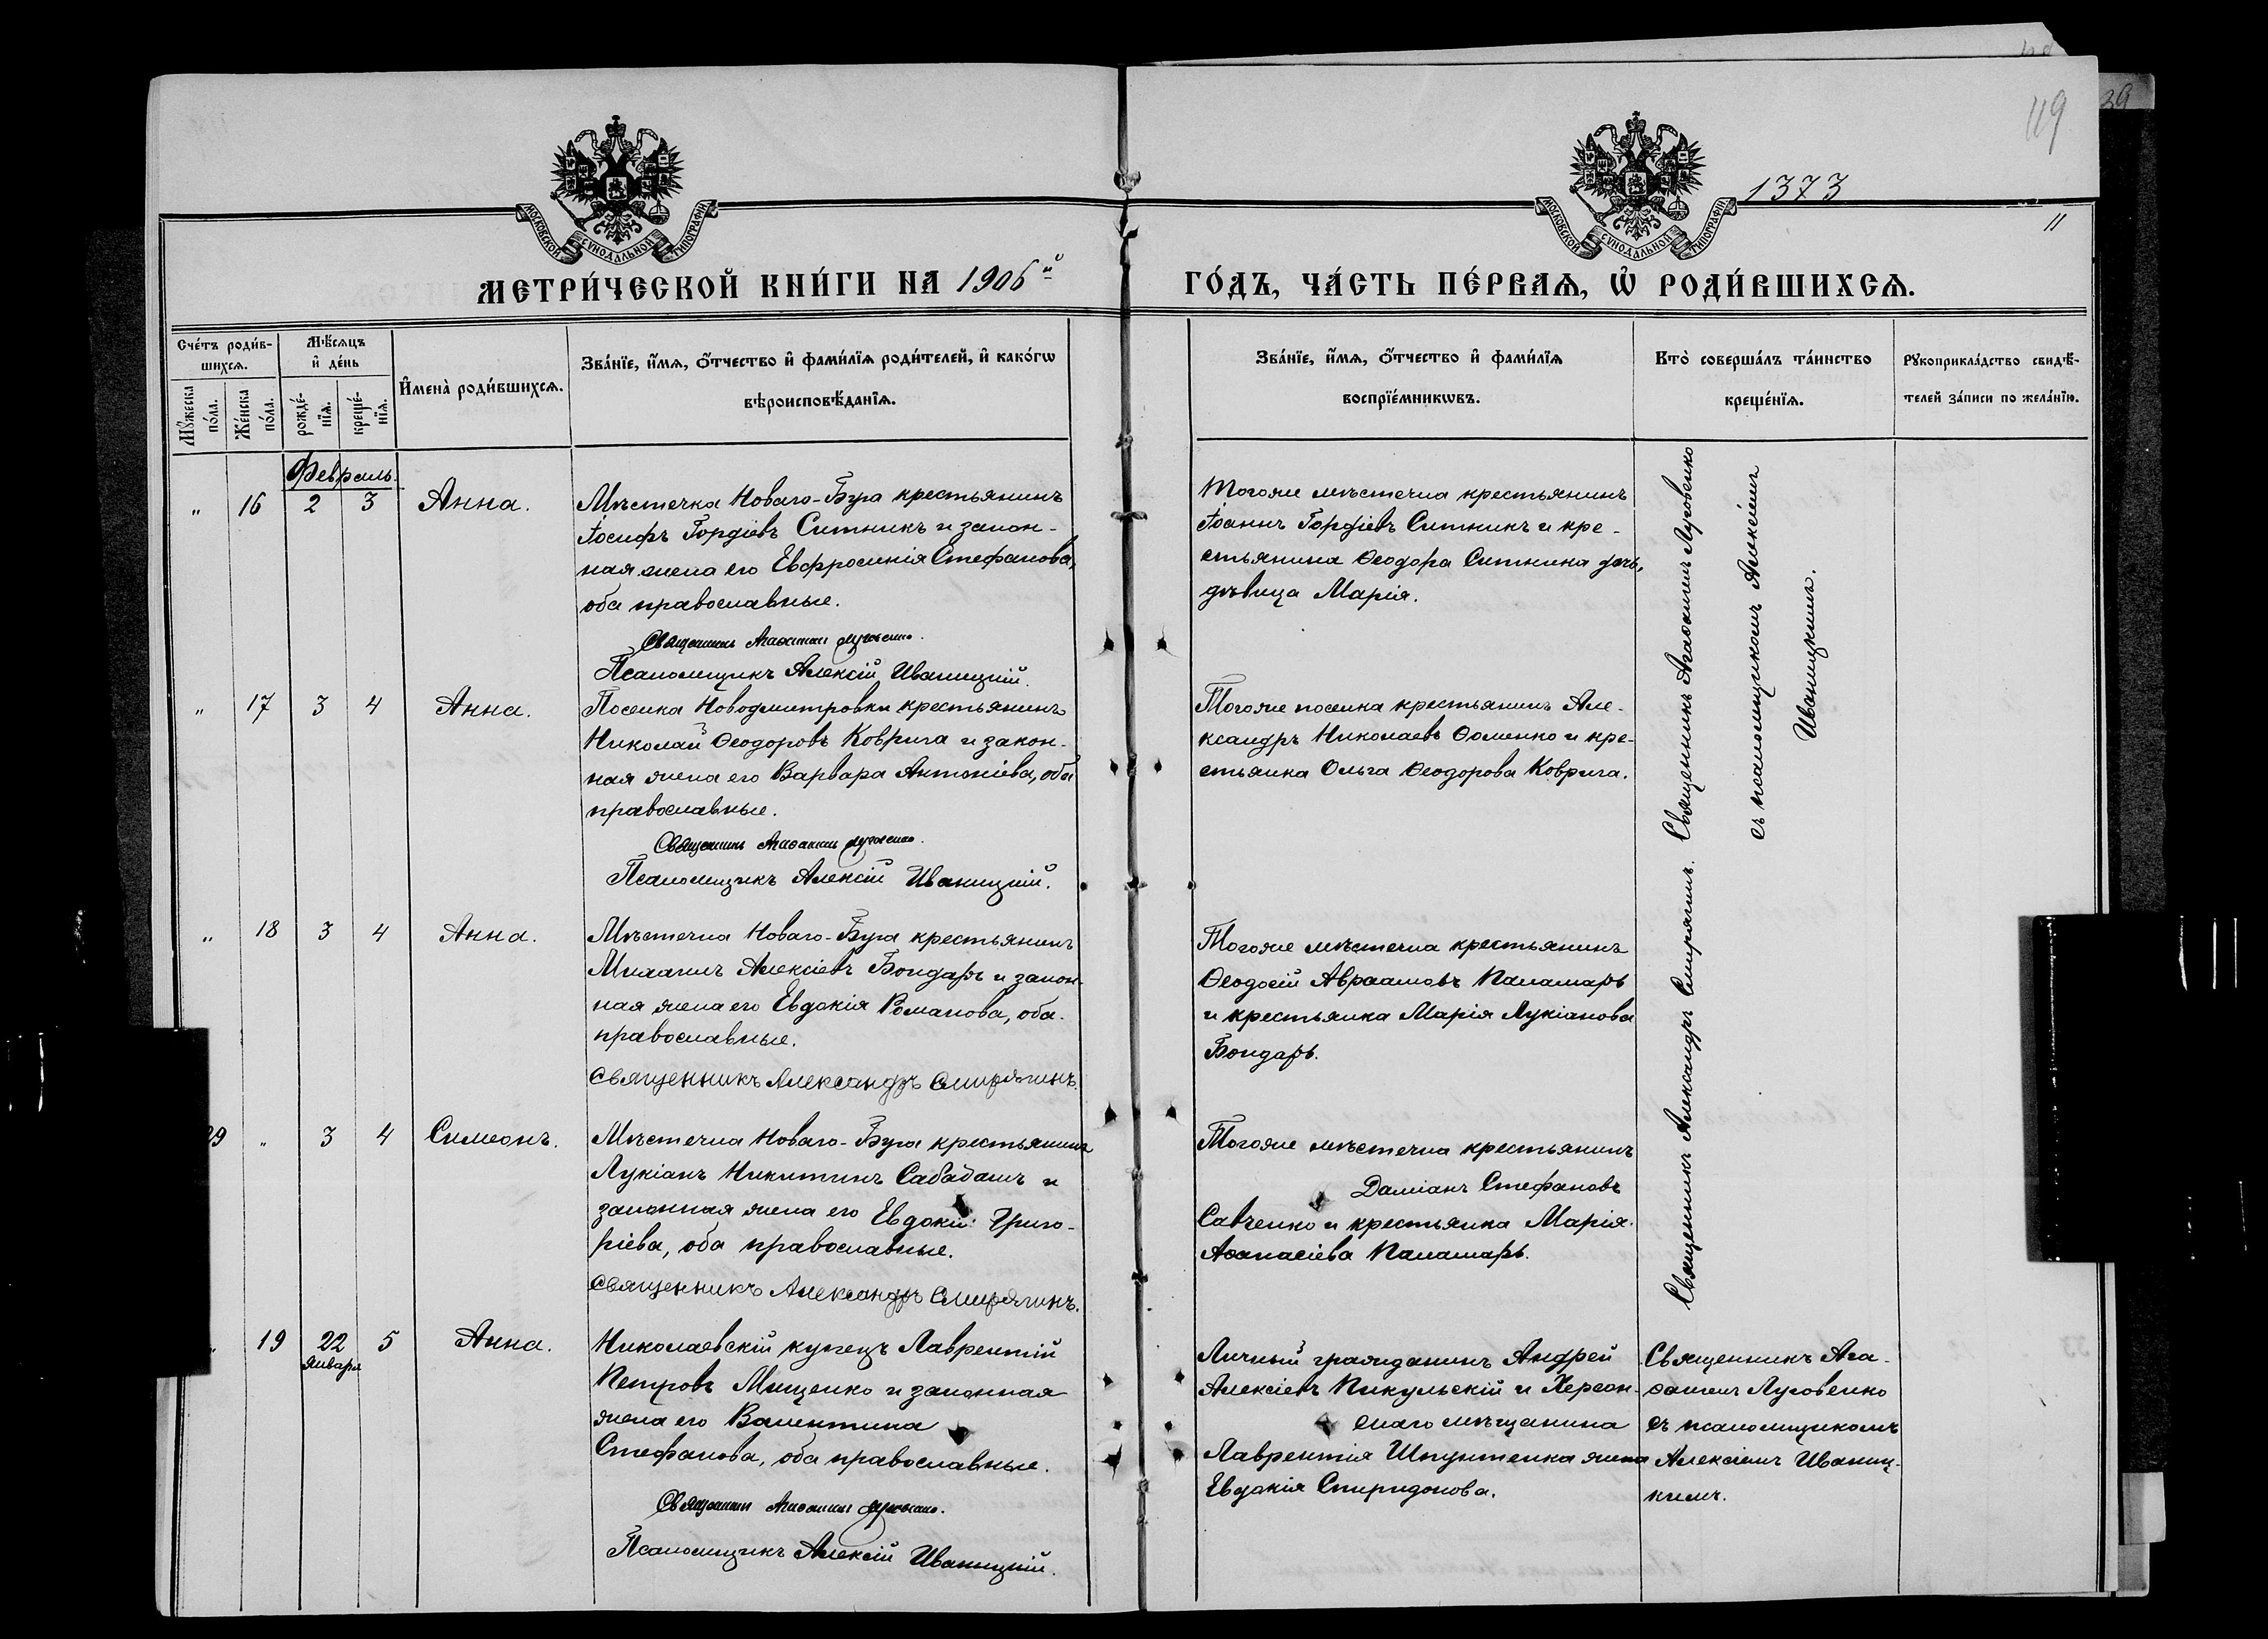 119
39
1373
11
МОСКОВСКОЙ СѴНОДАЛЬНОЙ ТИПОГРАФІИ
МОСКОВСКОЙ СѴНОДАЛЬНОЙ ТИПОГРАФІИ
МЕТРИ́ЧЕСКОЙ КНИ́ГИ НА 1906й ГО́ДЪ, ЧА́СТЬ ПЕ́РВАѦ, Ѡ҆ РОДИ́ВШИХСѦ.
Сче́тъ роди́в-
шихсѧ.
Мꙋ́жеска по́ла.
Же́нска по́ла.
Мѣ́сѧцъ
и҆ де́нь
рожде́-нїѧ.
креще́-нїѧ.
И҆мена̀ роди́вшихсѧ.
Зва́нїе, и҆́мѧ, ѻ҆́тчество и҆ фами́лїѧ роди́телей, и҆ како́гѡ
вѣроисповѣ́данїѧ.
Зва́нїе, и҆́мѧ, ѻ҆́тчество и҆ фами́лїѧ
воспрїе́мникѡвъ.
Кто̀ соверша́лъ та́инство
креще́нїѧ.
Рꙋкоприкла́дство свидѣ́-
телей за́писи по жела́нїю.
Февраль.
" 16 2 3 Анна.
Мѣстечка Новаго-Буга крестьянинъ
Іосифъ Гордіевъ Ситникъ и закон-
ная жена его Евфросинія Стефанова,
оба православные.
Священникъ Агаѳангелъ Луговенко.
Псаломщикъ Алексій Иваницкій.
Тогоже мѣстечка крестьянинъ
Іоаннъ Гордіевъ Ситникъ и кре-
стьянина Ѳеодора Ситника дочь,
дѣвица Марія.
Священникъ Агаѳангелъ Луговенко
съ псаломщикомъ Алексіемъ
Иваницкимъ.
" 17 3 4 Анна.
Поселка Новодмитровки крестьянинъ
Николай Ѳеодоровъ Коврига и закон-
ная жена его Варвара Антоніева, оба
православные.
Священникъ Агаѳангелъ Луговенко.
Псаломщикъ Алексій Иваницкій.
Тогоже поселка крестьянинъ Але-
ксандръ Николаевъ Ѳоменко и кре-
стьянка Ольга Ѳеодорова Коврига.
" 18 3 4 Анна.
Мѣстечка Новаго-Буга крестьянинъ
Михаилъ Алексіевъ Бондарь и закон-
ная жена его Евдокія Романова, оба
православные.
Священникъ Александръ Смирягинъ.
Тогоже мѣстечка крестьянинъ
Ѳеодосій Авраамовъ Паламарь
и крестьянка Марія Лукіанова
Бондарь.
Священникъ Александръ Смирягинъ.
29 " 3 4 Симеонъ.
Мѣстечка Новаго-Буга крестьянинъ
Лукіанъ Никитинъ Сабадашъ и
законная жена его Евдокія Григо-
ріева, оба православные.
Священникъ Александръ Смирягинъ.
Тогоже мѣстечка крестьянинъ
Даміанъ Стефановъ
Савченко и крестьянка Марія
Аѳанасіева Паламарь.
" 19 22 января 5 Анна.
Николаевскій купецъ Лаврентій
Петровъ Мищенко и законная
жена его Валентина
Стефанова, оба православные.
Священникъ Агаѳангелъ Луговенко.
Псаломщикъ Алексій Иваницкій.
Личный гражданинъ Андрей
Алексіевъ Пикульскій и Херсон-
скаго мѣщанина
Лаврентія Шпунтенка жена
Евдокія Спиридонова.
Священникъ Ага-
ѳангелъ Луговенко
съ псаломщикомъ
Алексіемъ Иваниц-
кимъ.